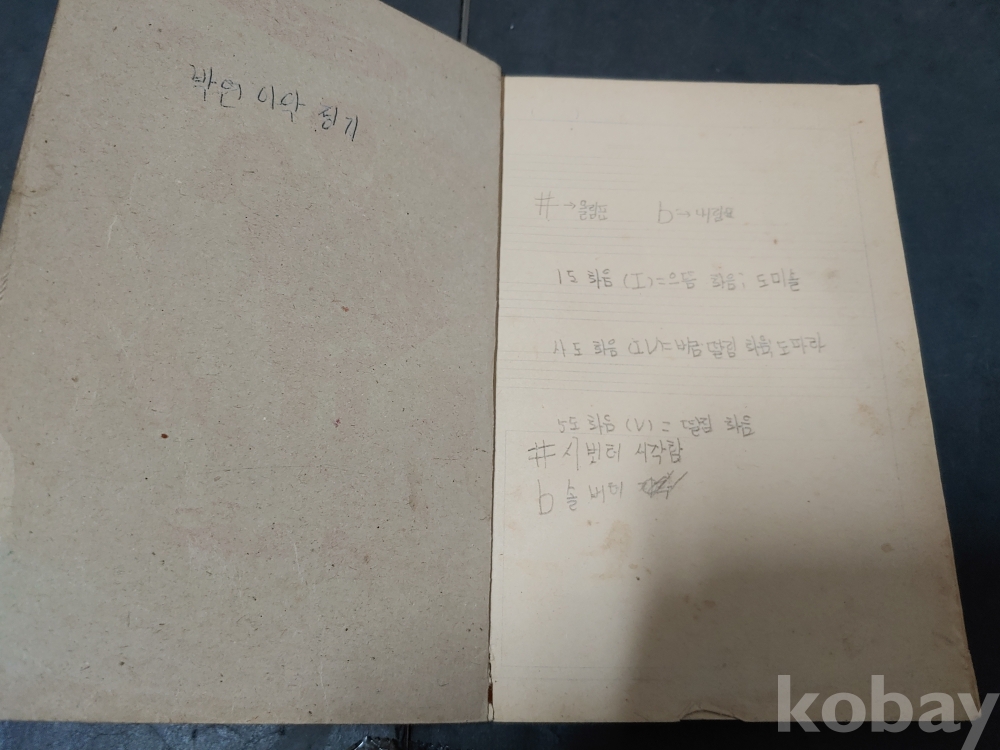 박인 이악 최기
# → 올림표 b → 내림표
1도 화음 (I)=으뜸 화음; 도미솔
4도 화음 (IV)=버금딸림 화음 도파라
5도 화음 (V) = 딸림 화음
# 시 부터 시작함
b 솔
kobay